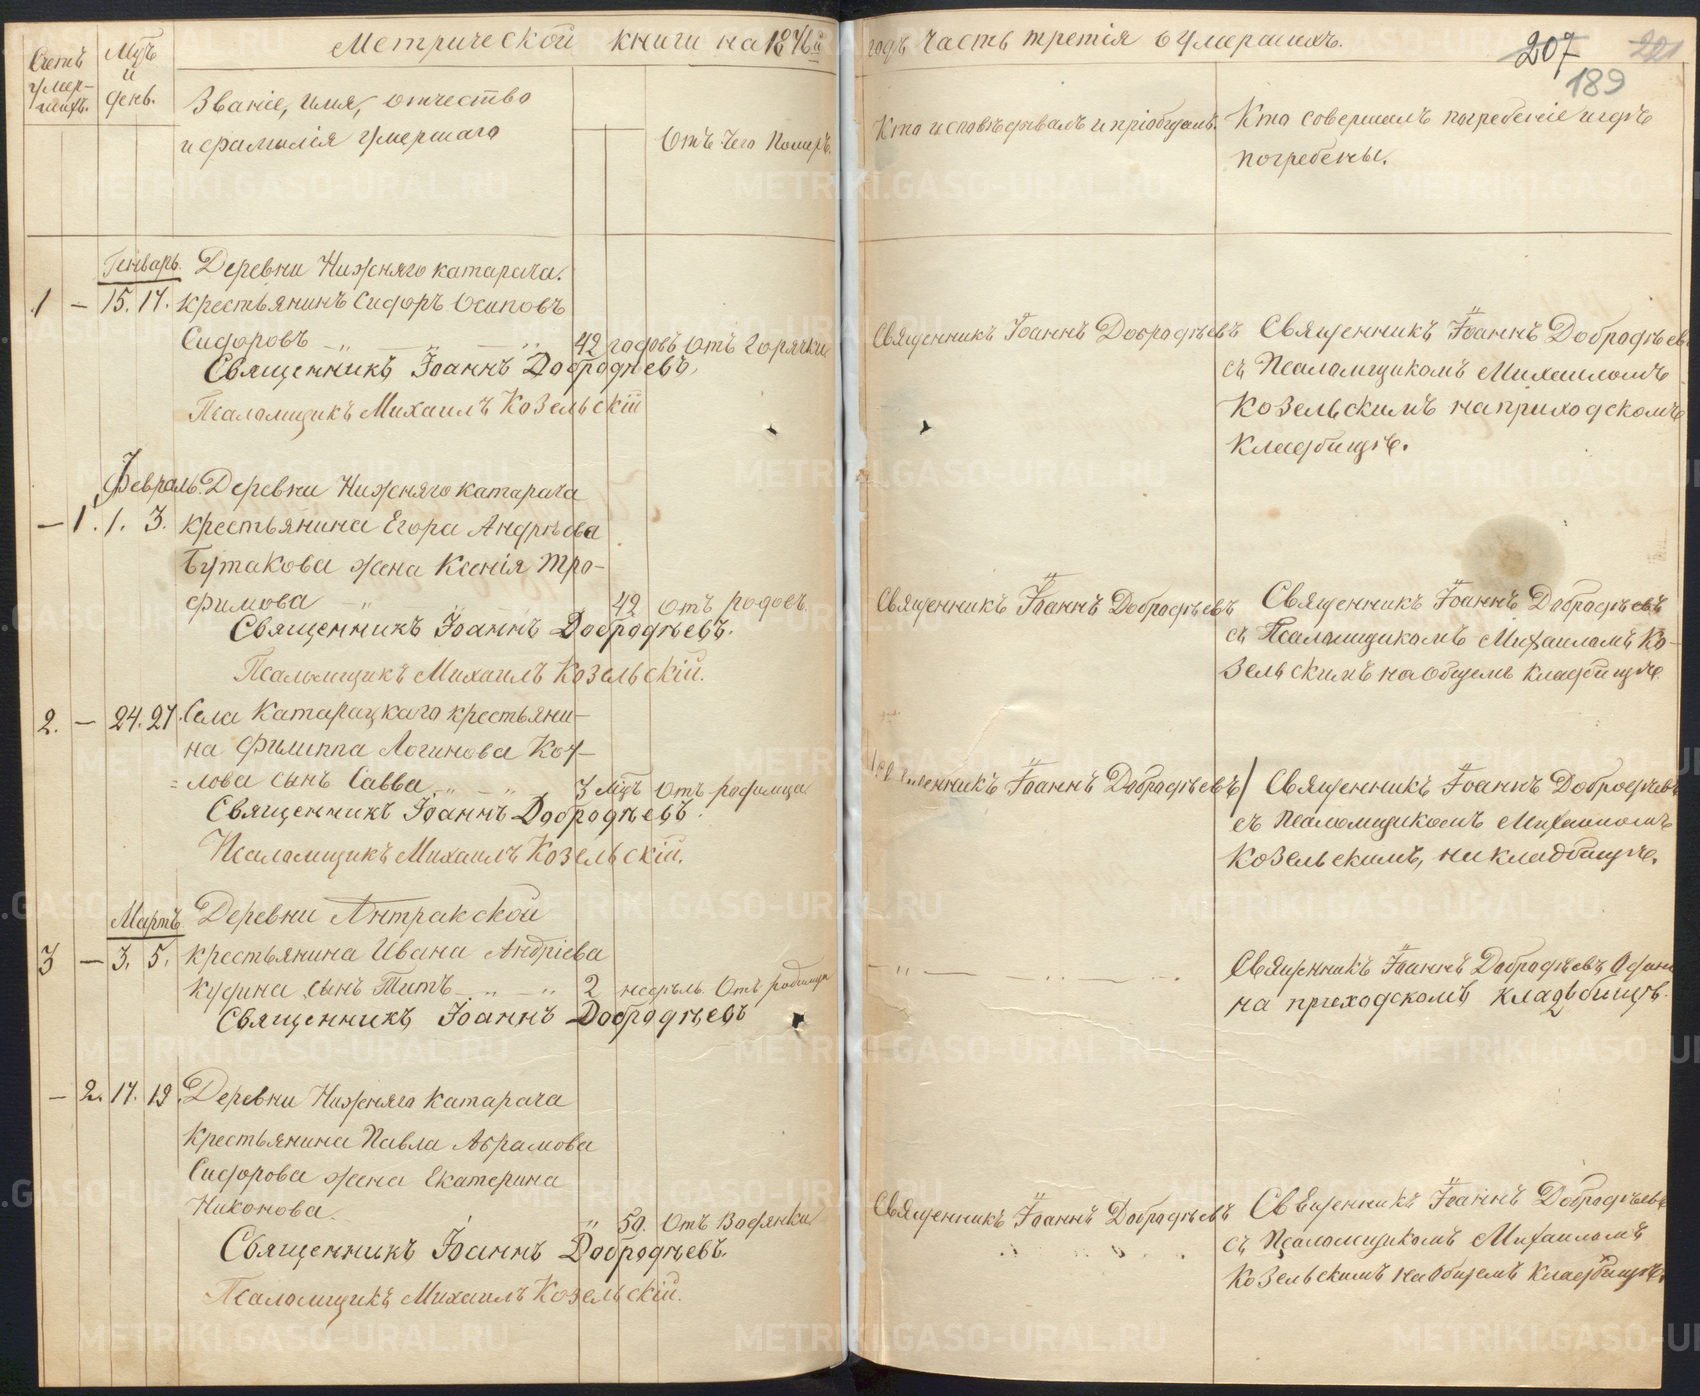 Метрической книги на 1876й годъ часть третія о умершихъ.
207
221
189
Счетъ умер-шихъ.
Мѣсъ и день.
Званіе, имя, отчество
и фамилія умершаго
Отъ чего померъ.
Кто исповѣдывалъ и пріобщалъ.
Кто совершалъ погребеніе и гдѣ
погребены.
Генварь. Деревни Нижняго катарача.
1 – 15. 17. крестьянинъ Сидоръ Осиповъ
Сидоровъ 42 годовъ Отъ горячки
Священникъ Іоаннъ Добродѣевъ.
Псаломщикъ Михаилъ Козельскій
Священникъ Іоаннъ Добродѣевъ
Священникъ Іоаннъ Добродѣевъ
съ Псаломщикомъ Михаиломъ
Козельскимъ на приходскомъ
кладбищѣ.
Февраль. Деревни Нижняго катарача
– 1. 1. 3. крестьянина Егора Андрѣева
Бутакова жена Ксенія Тро-
фимова 42 отъ родовъ.
Священникъ Іоаннъ Добродѣевъ.
Псаломщикъ Михаилъ Козельскій.
Священникъ Іоаннъ Добродѣевъ
Священникъ Іоаннъ Добродѣевъ
съ Псаломщикомъ Михаиломъ Ко-
зельскимъ на общемъ кладбищѣ
2. – 24. 27. Села Катарацкаго крестьяни-
на Филиппа Логинова Коч-
=лова сынъ Савва 3 мѣсъ Отъ родимца
Священникъ Іоаннъ Добродѣевъ.
Псаломщикъ Михаилъ Козельскій.
Священникъ Іоаннъ Добродѣевъ
Священникъ Іоаннъ Добродѣевъ
съ Псаломщикомъ Михаиломъ
Козельскимъ, на кладбищѣ.
Мартъ Деревни Антракской
3 – 3. 5. крестьянина Ивана Андріева
Кудина сынъ Титъ 2 недѣль. Отъ родимца
Священникъ Іоаннъ Добродѣевъ
Священникъ Іоаннъ Добродѣевъ Одинъ
на приходскомъ кладбищѣ.
– 2. 17. 19. Деревни Нижняго катарача
крестьянина Павла Абрамова
Сидорова жена Екатерина
Никонова. 50. Отъ Водянки
Священникъ Іоаннъ Добродѣевъ.
Псаломщикъ Михаилъ Козельскій.
Священникъ Іоаннъ Добродѣевъ
Священникъ Іоаннъ Добродѣевъ
съ Псаломщикомъ Михаиломъ
Козельскимъ на общемъ кладбищѣ.
METRIKI.GASO-URAL.RU